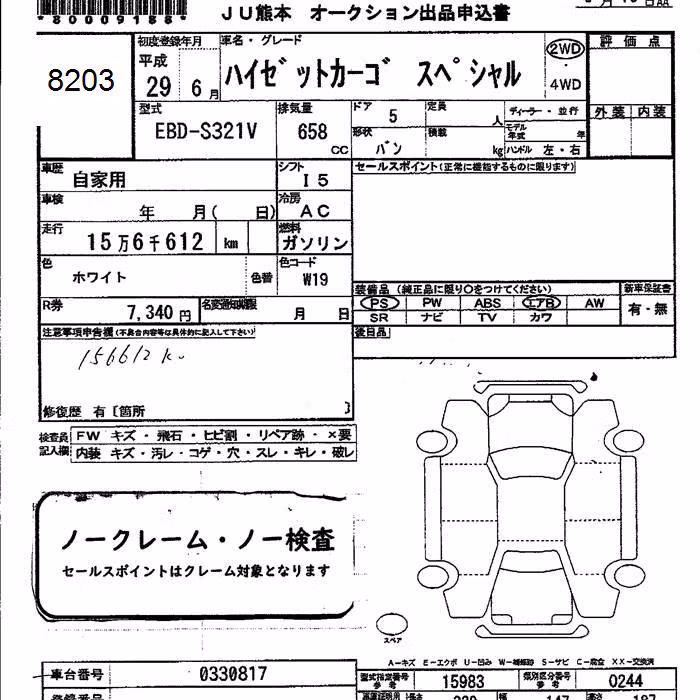 *80009188*
JU熊本 オークション出品申込書
8203
初度登録年月 車名・グレード 2WD 評価点
平成 29 6月 ハイゼットカーゴ スペシャル ・ 4WD
型式 排気量 ドア 5 定員 人 ディーラー・並行 外装 内装
EBD-S321V 658 CC 形状 バン 積載 kg モデル年式 年 ハンドル 左・右
車歴 自家用 シフト I5 セールスポイント(正常に機能するものに限ります)
車検 年 月( 日) 冷房 AC
走行 15万6千612 km 燃料 ガソリン
色 ホワイト 色番 色コード W19
装備品 (純正品に限り○をつけてください) 新車保証書
R券 7,340円 名変通知期限 月 日 PS PW ABS エアB AW 有・無
SR ナビ TV カワ
注意事項申告欄(不具合内容等は具体的に記入して下さい) 後日品
156612 K
修復歴 有〔箇所 〕
検査員 FW キズ・飛石・ヒビ割・リペア跡・×要
記入欄 内装 キズ・汚レ・コゲ・穴・スレ・キレ・破レ
ノークレーム・ノー検査
セールスポイントはクレーム対象となります
スペア
A-キズ E-エクボ U-凹み W-補修跡 S-サビ C-腐食 XX-交換済
車台番号 0330817 型式指定番号 参考 15983 類別区分番号 参考 0244